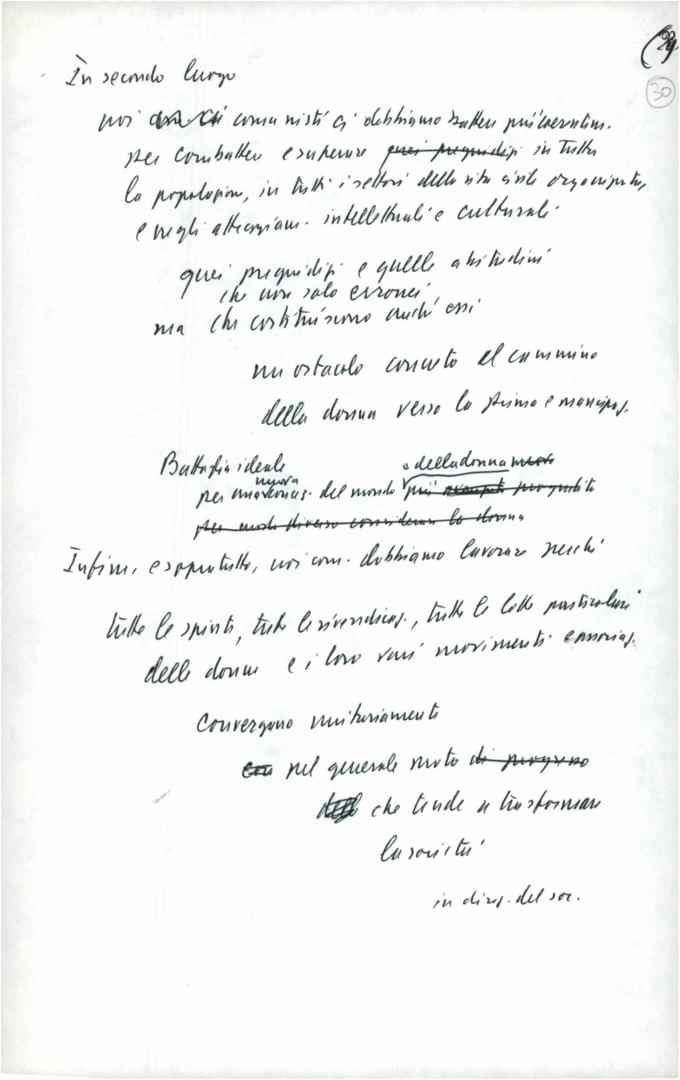 30
In secondo luogo
noi comunisti ci dobbiamo battere più coerentem.
per combattere e superare quei pregiudizi in tutta
la popolazione, in tutti i settori della vita civile organizzata,
e negli atteggiam. intellettuali e culturali
quei pregiudizi e quelle abitudini
che non solo erronei
ma che costituiscono anch'essi
un ostacolo concreto al cammino
della donna verso la piena emancipaz.
Battaglia ideale
e della donna
per una nuova concez. del mondo più avanzata progredita
per modo diverso considerare la donna
Infine, e soprattutto, noi com. dobbiamo lavorare perché
tutte le spinte, tutte le rivendicaz., tutte le lotte particolari
delle donne e i loro vari movimenti e associaz.
convergano unitariamente
con nel generale moto di progresso
che tende a trasformare
la società
in direz. del soc.